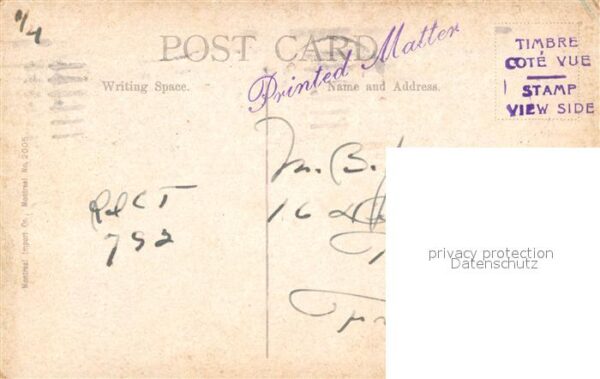 POST CARD
Printed Matter
TIMBRE
COTÉ VUE
STAMP
VIEW SIDE
Writing Space.
Name and Address.
M. B.
792
Montreal Import Co., Montreal No. 2005
privacy protection
Datenschutz